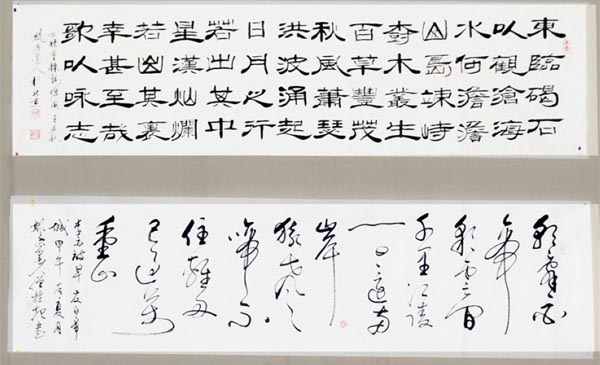 東臨碣石
以觀滄海
水何澹澹
山島竦峙
奇木叢生
百草豐茂
秋風蕭瑟
洪波涌起
日月之行
若出其中
星漢灿爛
若出其裏
幸甚至哉
歌以咏志
朝辭白
帝
彩雲間
千里江陵
一日還兩
岸
猿聲
啼不
住輕舟
已過萬
重山
李白詩早發白帝
城甲午夏月
書